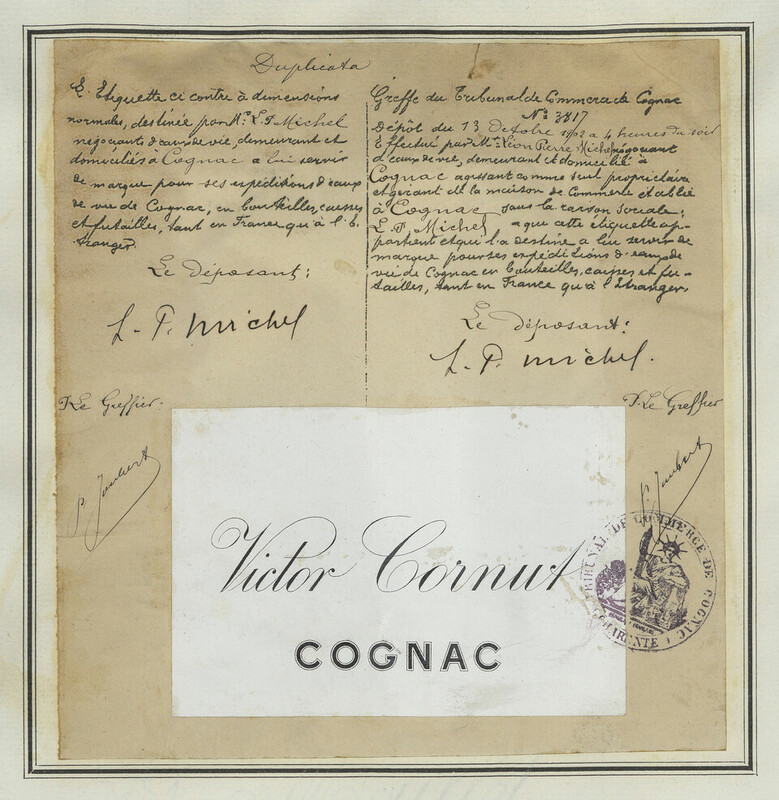 Duplicata
L'Etiquette ci contre à dimensions
normales, destinée par Mr. L. P. Michel
négociant d'eaux de vie, demeurant et
domiciliés à Cognac a lui servir
de marque pour ses expéditions d'eaux
de vie de Cognac, en bouteilles, caisses
et futailles, tant en France qu'à l'E-
tranger.
Le déposant:
L. P. Michel
P. Le Greffier.
P. Joubert
Greffe du Tribunal de Commerce de Cognac
No 3817
Dépôt du 13 Octobre 1902 à 4 heures du soir
Effectué par Mr. Léon Pierre Michel négociant
d'eaux de vie, demeurant et domicilié à
Cognac agissant comme seul propriétaire
et gérant de la maison de Commerce établie
à Cognac sous la raison sociale:
L. P. Michel a que cette étiquette ap-
partient et qu'il l'a destine a lui servir de
marque pour ses expéditions d'eaux de
vie de Cognac en bouteilles, caisses et fu-
tailles, tant en France qu'à l'Etranger.
Le déposant:
L. P. Michel.
P. Le Greffier
P. Joubert
Victor Cornut
COGNAC
TRIBUNAL DE COMMERCE DE COGNAC
CHARENTE